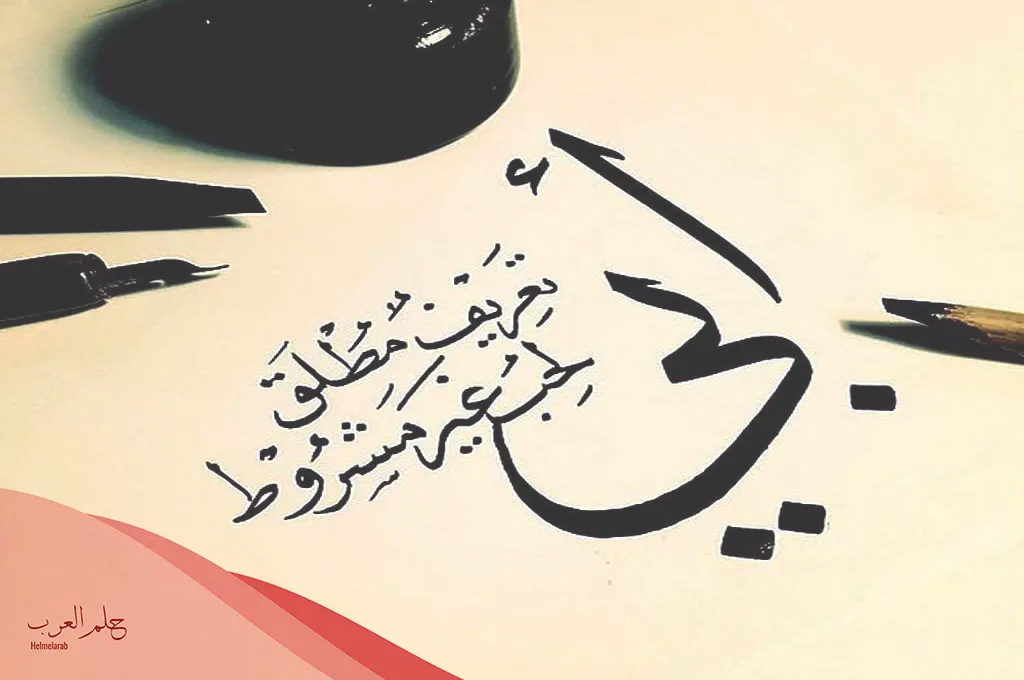 أبي
تعريف مُطْلَق
لِحُب غير مشرُوط
حلم العرب
Helmelarab